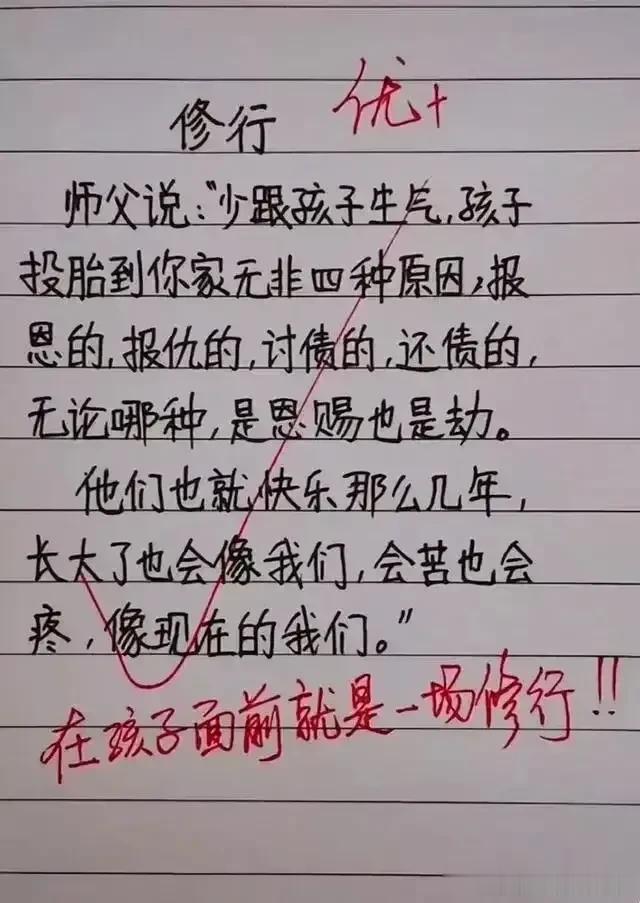 修行 优+
师父说:“少跟孩子生气,孩子
投胎到你家无非四种原因,报
恩的,报仇的,讨债的,还债的,
无论哪种,是恩赐也是劫。
他们也就快乐那么几年,
长大了也会像我们,会苦也会
疼,像现在的我们。”
在孩子面前就是一场修行!!